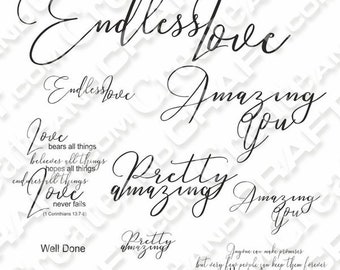 Endless Love
Endless Love
Amazing
You
Love
bears all things
believes all things
hopes all things
endures all things
Love
never fails
(1 Corinthians 13:7-8)
Pretty
amazing
Amazing
You
Well Done
Pretty
amazing
Anyone can make promises
but very few people can keep them forever